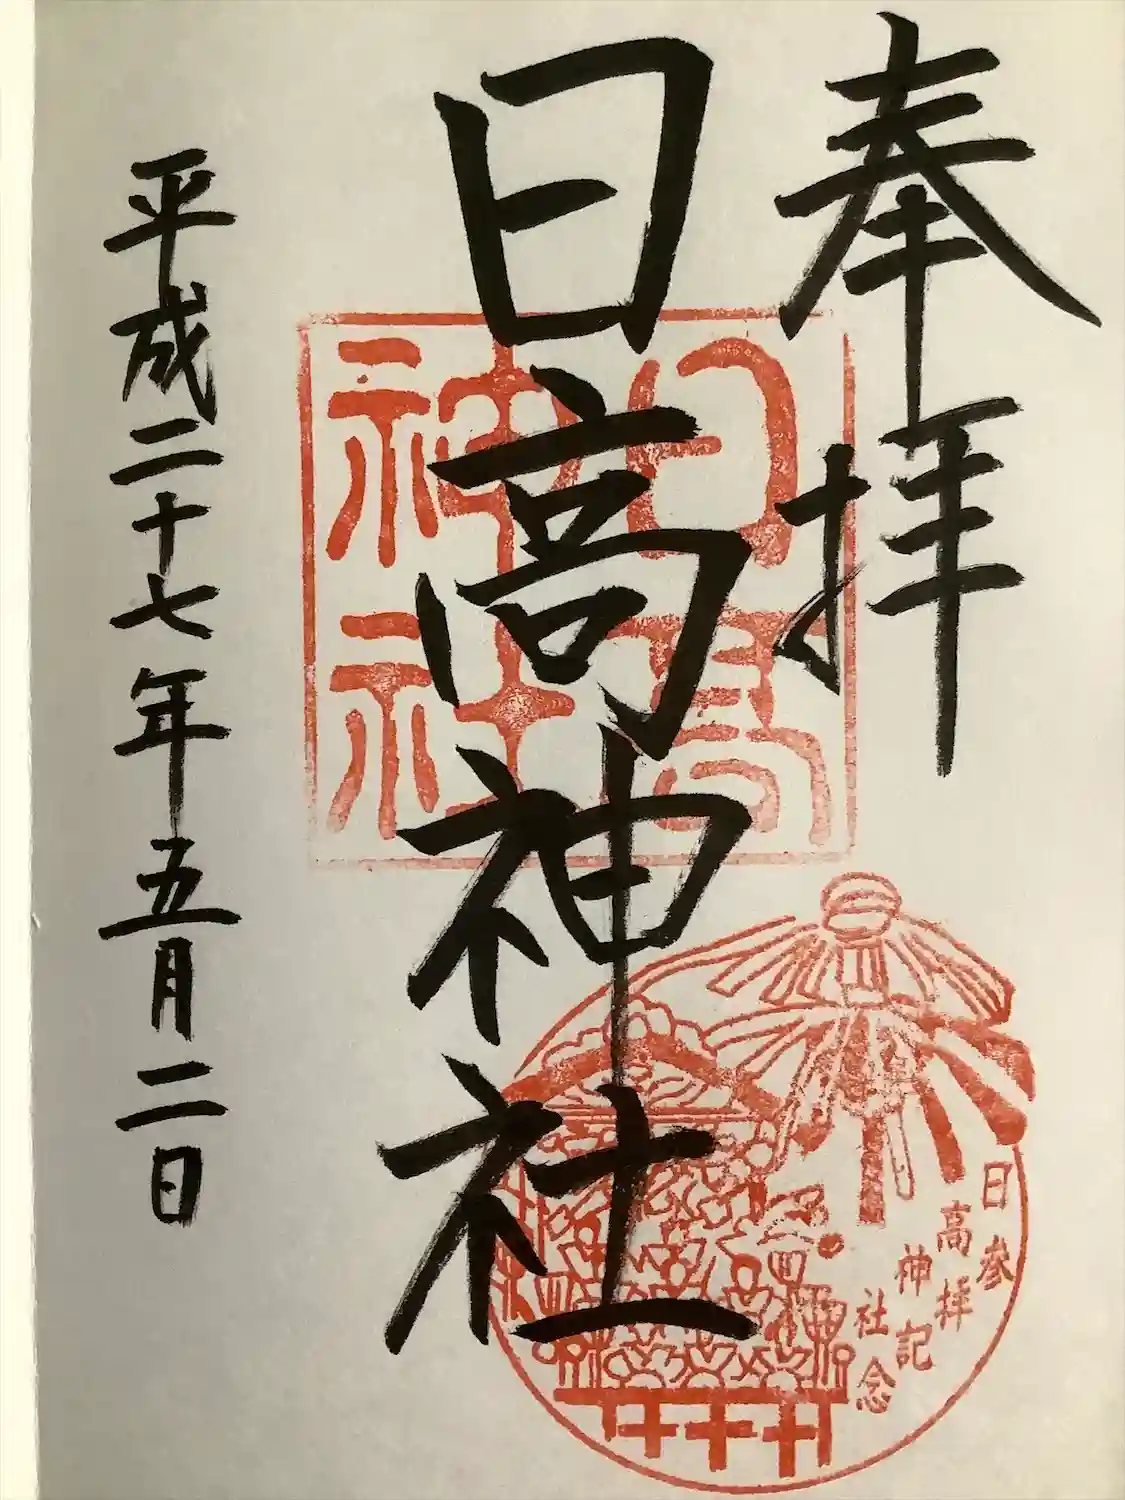 奉拝
日高神社
平成二十七年五月二日
日高神社
日高神社
参拝記念